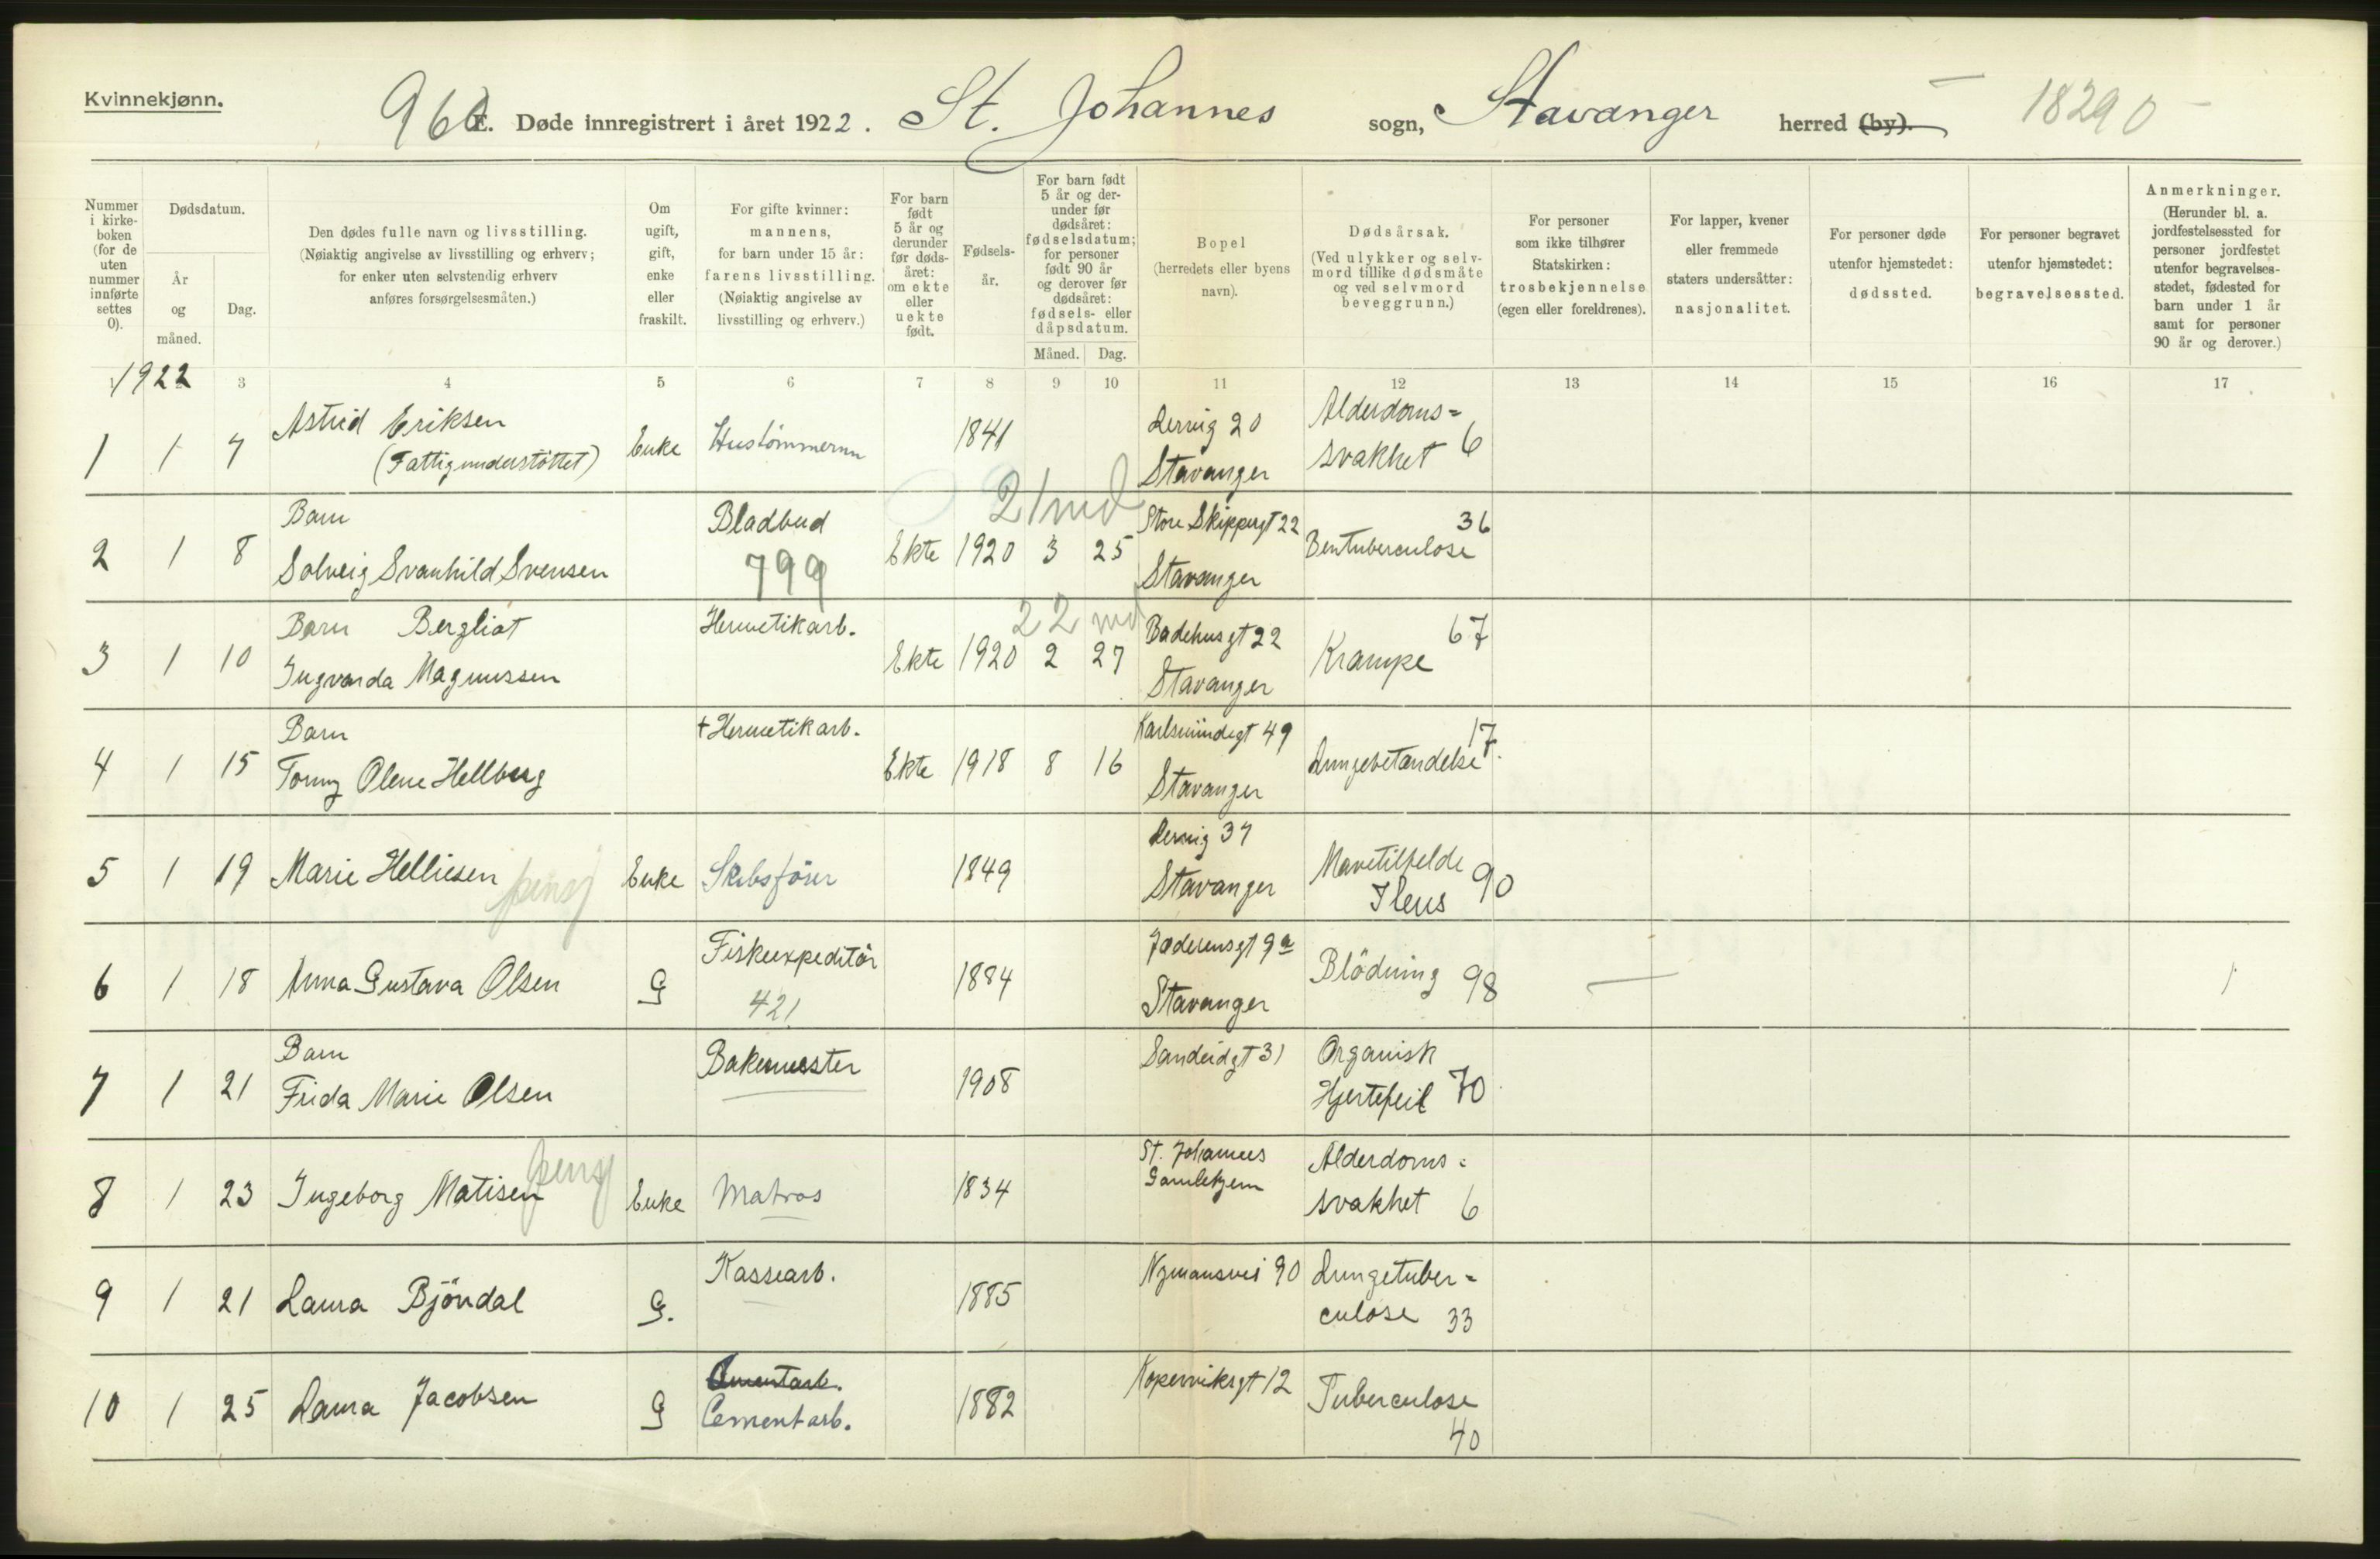 Kvinnekjønn.
E. Døde innregistrert i året 1922. St. Johannes sogn, Stavanger herred (by). 18290
Nummer i kirke-boken (for de uten nummer innførte settes 0).
Dødsdatum.
År og måned.
Dag.
Den dødes fulle navn og livsstilling.
(Nøiaktig angivelse av livsstilling og erhverv; for enker uten selvstendig erhverv anføres forsørgelsesmåten.)
Om ugift, gift, enke eller fraskilt.
For gifte kvinner: mannens, for barn under 15 år: farens livsstilling. (Nøiaktig angivelse av livsstilling og erhverv.)
For barn født 5 år og derunder før døds-året: om ekte eller uekte født.
Fødsels-år.
For barn født 5 år og der-under før dødsåret: fødselsdatum; for personer født 90 år og derover før dødsåret: fødsels- eller dåpsdatum.
Måned. Dag.
Bopel (herredets eller byens navn).
Dødsårsak. (Ved ulykker og selv-mord tillike dødsmåte og ved selvmord beveggrunn.)
For personer som ikke tilhører Statskirken: trosbekjennelse (egen eller foreldrenes).
For lapper, kvener eller fremmede staters undersåtter: nasjonalitet.
For personer døde utenfor hjemstedet: dødssted.
For personer begravet utenfor hjemstedet: begravelsessted.
Anmerkninger. (Herunder bl. a. jordfestelsessted for personer jordfestet utenfor begravelses-stedet, fødested for barn under 1 år samt for personer 90 år og derover.)
1922 3 4 5 6 7 8 9 10 11 12 13 14 15 16 17
1 1 7 Astrid Eriksen (Fattigunderstöttet) Enke Hustömmermn 1841 Lervig 20 Stavanger Alderdoms= svakhet 6
21 md
2 1 8 Barn Solveig Svanhild Svensen Bladbud 799 Ekte 1920 3 25 Store Skippergt 22 Stavanger Bentuberculose 36
22 md
3 1 10 Barn Bergliot Ingvarda Magnussen Hermetikarb. Ekte 1920 2 27 Badehusgt 22 Stavanger Krampe 67
4 1 15 Barn Tomy Olene Hellberg + Hermetikarb. Ekte 1918 8 16 Karlsmindegt 49 Stavanger Lungebetændelse 17
5 1 19 Marie Helliesen pensj Enke Skibsförer 1849 Lervig 37 Stavanger Mavetilfelde Ileus 90
6 1 18 Anna Gustava Olsen G Fiskeexpeditör 421 1884 Jæderensgt 9a Stavanger Blödning 98 — 1
7 1 21 Barn Frida Marie Olsen Bakermester 1908 Sandeidgt 31 Organisk Hjertefeil 70
8 1 23 Ingeborg Matisen pensj Enke Matros 1834 St. Johannes Gamlehjem Alderdoms= svakhet 6
9 1 21 Laura Bjöndal G. Kassearb. 1885 Nymansvei 90 Lungetuber= culose 33
10 1 25 Laura Jacobsen G Cementarb. 1882 Kopervikgt 12 Tuberculose 40